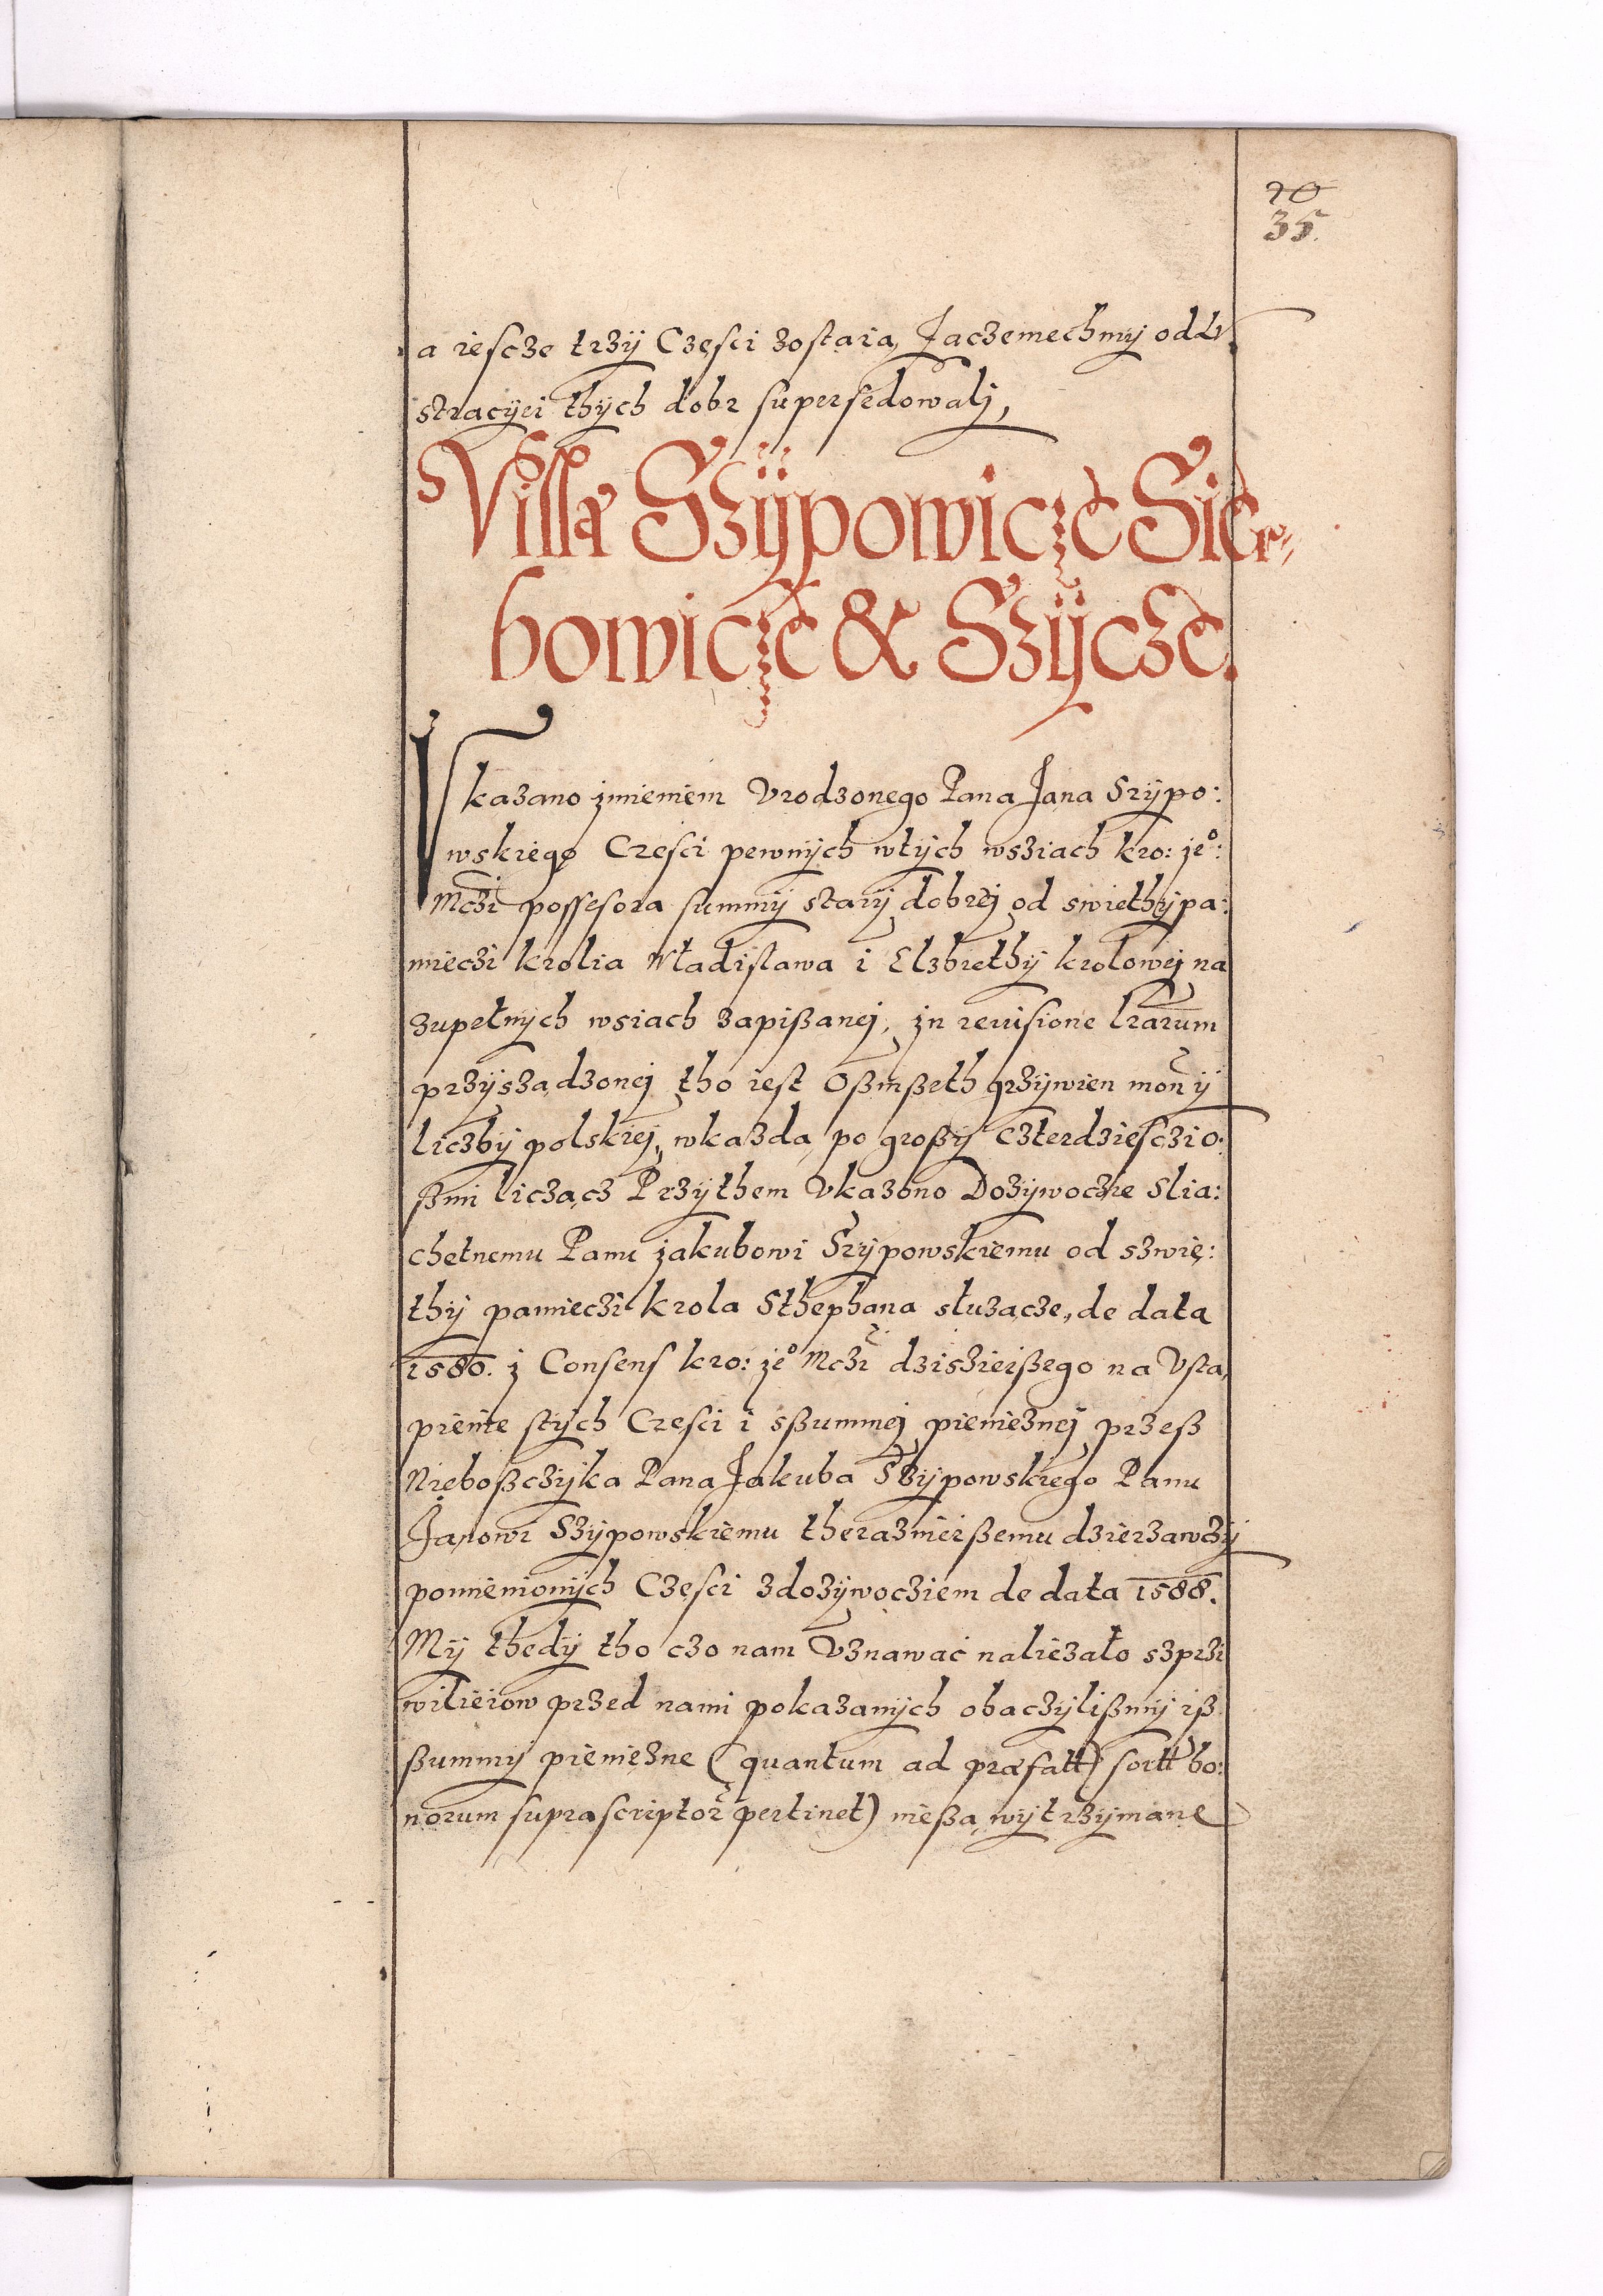 20
35.
a iescze trzÿ Częsci zostaią, Jaczemechmÿ od Lu
stracÿei thÿch dobr supersedowalj,
Villæ Szÿpowicze Sier„
bowicze & Szÿcze.
Vkazano jmieniem Vrodzonego Pana Jana Szÿpo:
wskiego Częsci pewnÿch wtÿch wsziach kro: je°:
Mczi possesora summÿ starÿ dobrej od swiethÿ pa:
mieczi krolia Władisława i Elzbiethÿ krolowej na
zupełnÿch wsiach zapißanej, jn reuisione lrarum
przÿsządzonej tho iest Oßmßeth grzÿwien mon ÿ
liczbÿ polskiej, wkażdą po großÿ czterdziesczi o:
ßmi licząncz Przÿthem Vkazono Dożÿwoczie Slia:
chetnemu Panu jakubowi Szÿpowskiemu od szwię:
thÿ pamieczi krola Sthephana służącze, de data
1580. j Consens kro: je° Mczi dzisieißego na Vstą
pienie stÿch Częsci i sßummej pienieżnej przeß
Nieboßczÿka Pana Jakuba Szÿpowskiego Panu
Janowi Szÿpowskiemu theraznieißemu dzierżawczÿ
pomienionÿch Częsci z dożÿwocziem de data 1588.
Mÿ thedÿ tho czo nam Vznawać należało szpri
wileiow przed nami pokazanÿch obaczÿlißmÿ iß
ßummÿ pienieżne (quantum ad præfatt) sortt bo:
norum suprascriptor pertinet) nießą wÿtrzÿmane